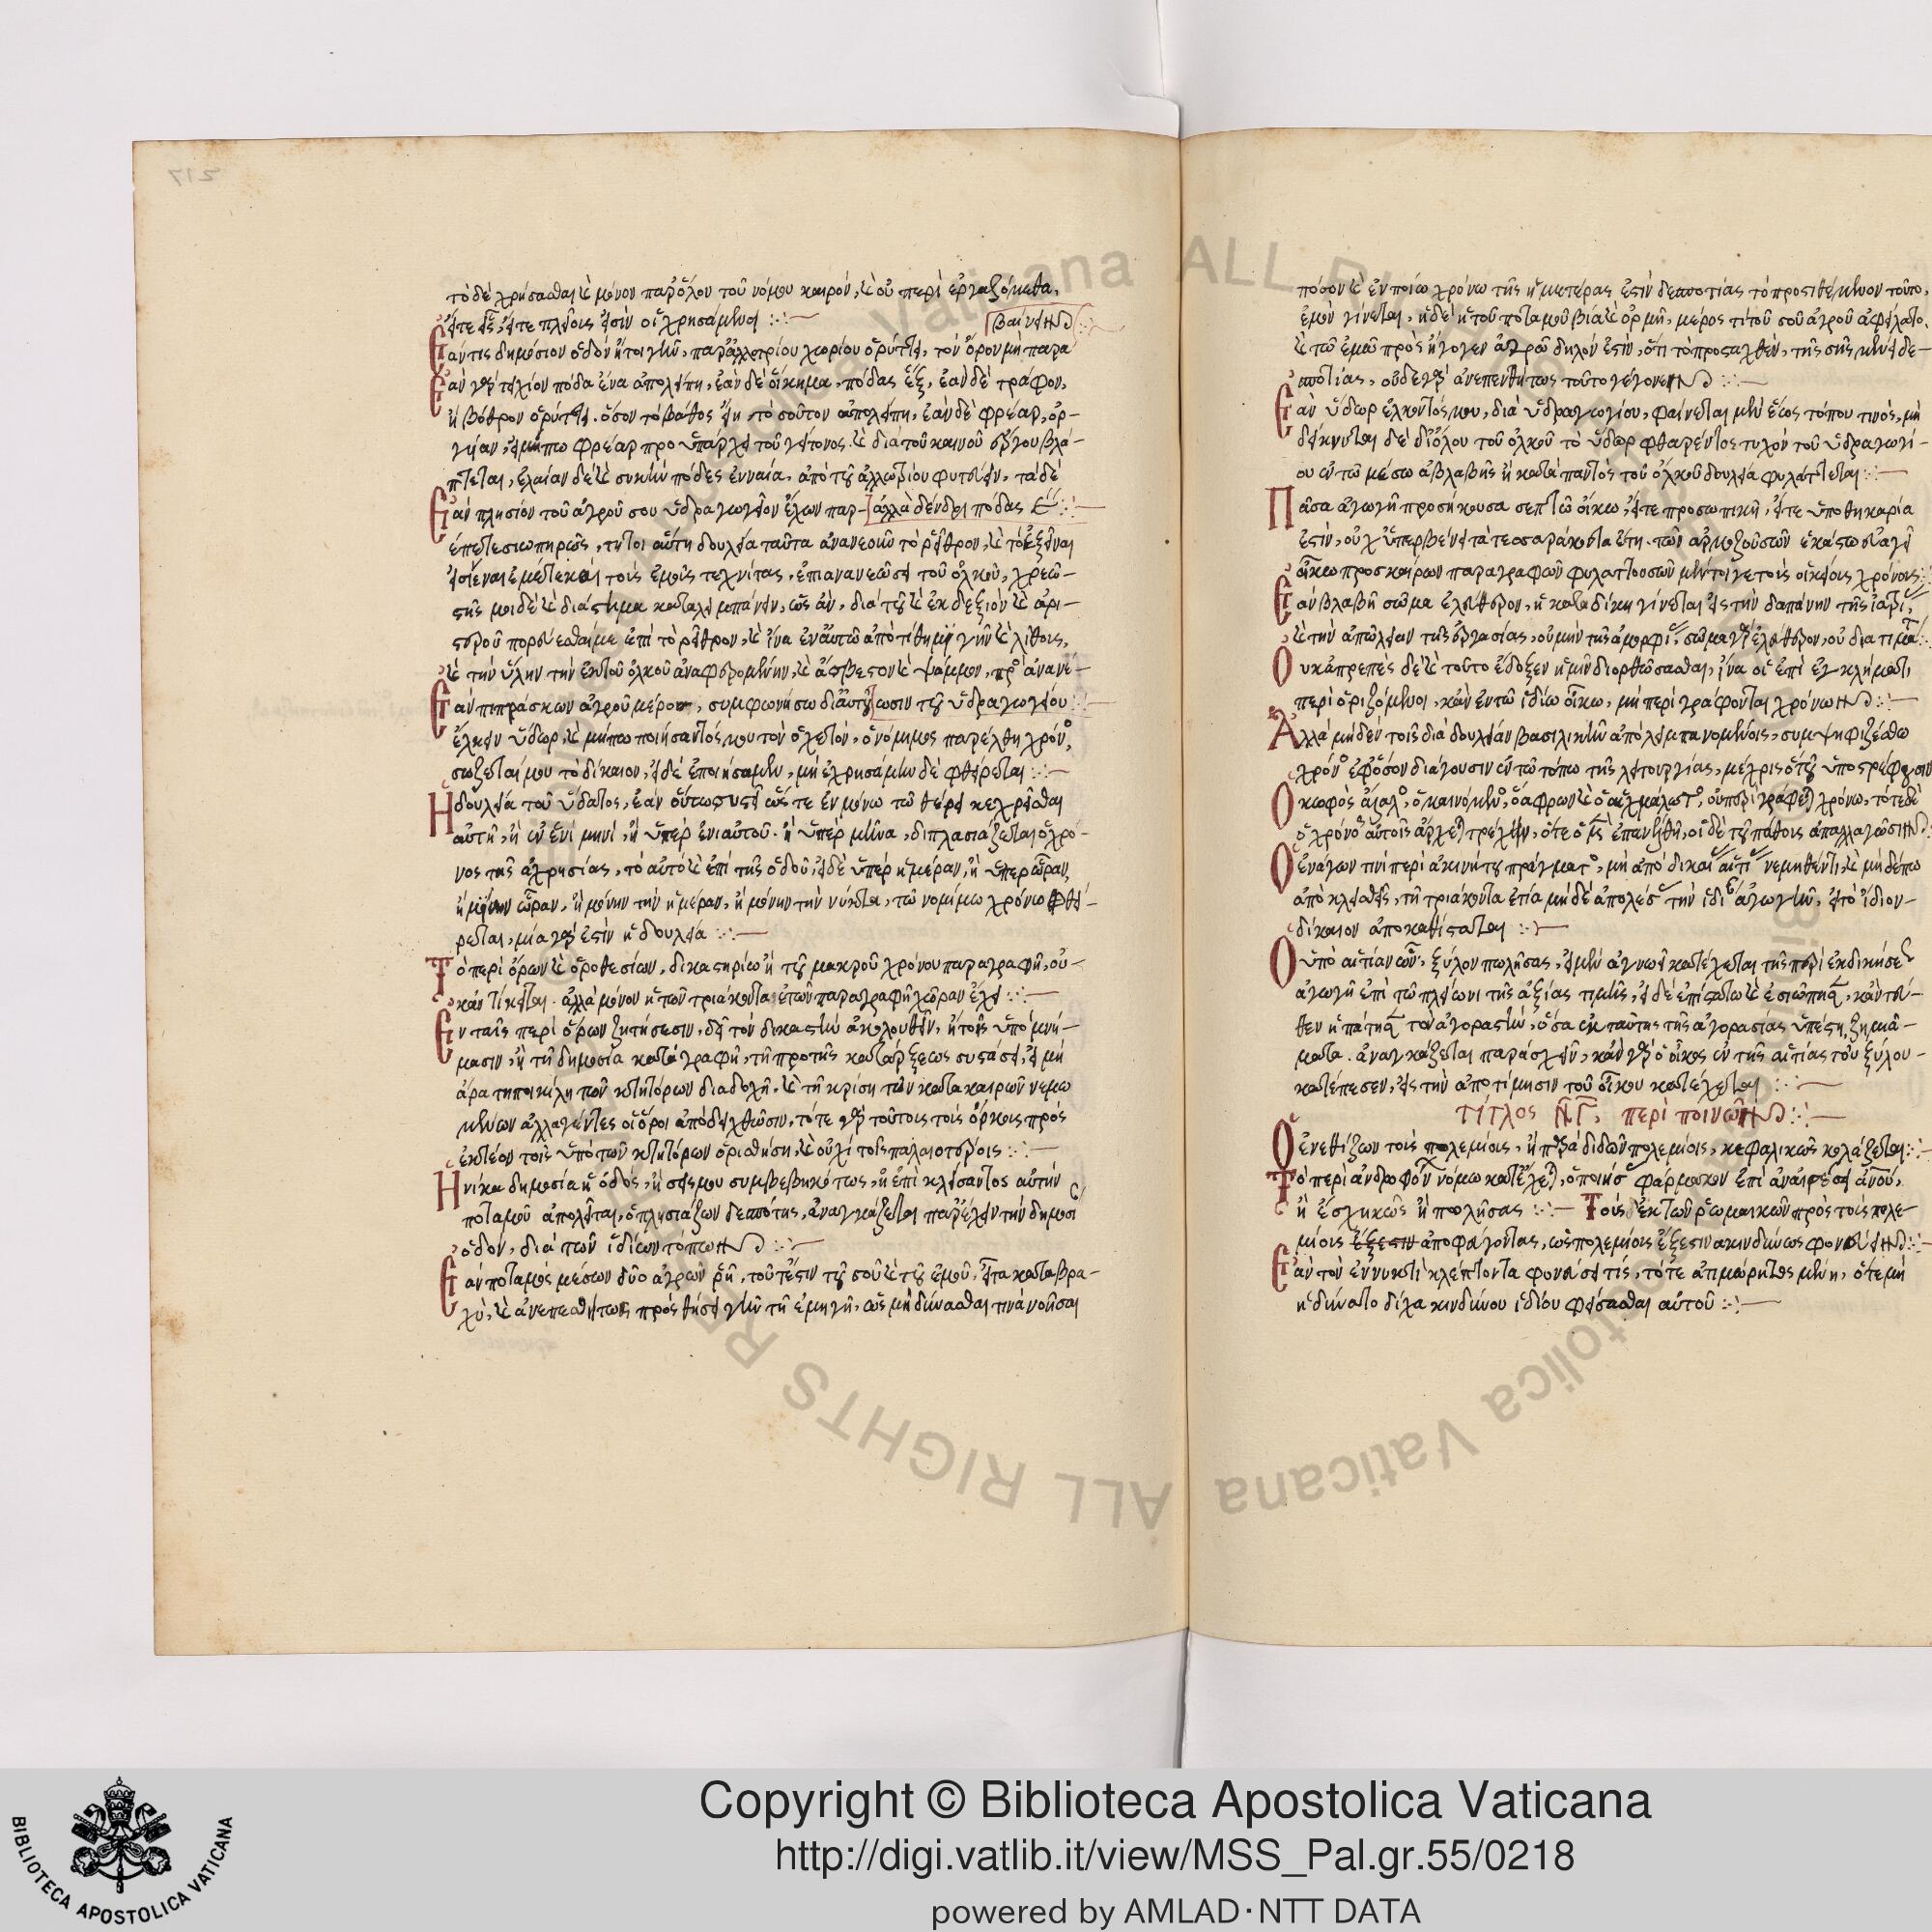 τὸ δὲ χρήσασθαι καὶ μόνον παρ' ὅλον τοῦ νόμου καιρόν, καὶ οὐ περὶ ἐργαζόμεθα,
εἴτε εἷς, εἴτε πλείους εἰσὶν οἱ χρησάμενοι
βαίνειν
Ἐάν τις δημόσιον ὁδὸν ἤτοι γῆν, παρ' ἀλλοτρίου χωρίου ὀρύττει, τὸν ὅρον μὴ παρα
Ἐὰν γὰρ τειχίον πόδα ἕνα ἀπολείπῃ, ἐὰν δὲ οἴκημα, πόδας ἕξ, ἐὰν δὲ τράφον,
ἢ βόθρον ὀρύττει, ὅσον τὸ βάθος εἴη, τὸ σοῦτον ἀπολείπῃ, ἐὰν δὲ φρέαρ, ὀρ-
γίαν, εἰ μήπω φρέαρ προϋπάρχει τοῦ γείτονος, καὶ διὰ τοῦ καινοῦ ἔργου βλά-
πτεται, ἐλαίαν δὲ καὶ συκῆν πόδες ἐνναία, ἀπὸ τοῦ ἀλλωτρίου φυτεύειν, τὰ δὲ
Ἐὰν πλησίον τοῦ ἀγροῦ σου ὑδραγωγεῖον ἔχων παρ-
ἀλλὰ δένδρι πόδας ε
έπεται σιωπηρῶς, τῇ τοιαύτῃ δουλεία ταῦτα ἀνανεοῦν τὸ ῥεῖθρον, καὶ τὸ ἐξεῖναι
εἰσιέναι ἐμέ τε καὶ τοὺς ἐμοὺς τεχνίτας, ἐπὶ ἀνανεώσει τοῦ ὁλκοῦ, χρεω-
στῆς μοι δὲ καὶ διάστημα καταλειμπάνειν, ὡς ἂν, διὰ τοῦ καὶ ἐκ δεξιῶν καὶ ἀρι-
στεροῦ πορεύεσθαί με ἐπὶ τὸ ῥεῖθρον, καὶ ἵνα ἐν αὐτῷ ἀποτίθημι γῆν καὶ λίθους,
καὶ τὴν ὕλην τὴν ἐκ τοῦ ὁλκοῦ ἀναφερομένην, καὶ ἄσβεστον καὶ ψάμμον, πρὸς ἀνανέ-
Ἐὰν πιπράσκων ἀγροῦ μέρος, συμφωνήσω δι' αὐτοῦ
ωσιν τοῦ ὑδραγωγείου
ἕλκειν ὕδωρ, καὶ μήπω ποιήσαντός μου τὸν ὀχετόν, ὁ νόμιμος παρέλθῃ χρόνος
σώζεταί μου τὸ δίκαιον, εἰ δὲ ἐποιησάμην, μὴ ἐχρησάμην δὲ φθείρεται
Ἡ δουλεία τοῦ ὕδατος, ἐὰν οὕτω συστῇ ὥστε ἐν μόνω τῶ θέρει κεχρῆσθαι
αὐτῇ, ἢ ἐν ἑνὶ μηνί, ἢ ὑπὲρ ἐνιαυτοῦ, ἢ ὑπὲρ μῆνα, διπλασιάζεται ὁ χρό-
νος τῆς ἀχρησίας, τὸ αὐτὸ καὶ ἐπὶ τῆς ὁδοῦ, εἰ δὲ ὑπὲρ ἡμέραν, ἢ ὑπὲρ ὥραν,
ἢ μόνην ὥραν, ἢ μόνην τὴν ἡμέραν, ἢ μόνην τὴν νύκτα, τῶ νομίμω χρόνω φθεί-
ρεται, μία γάρ ἐστιν ἡ δουλεία
Τὸ περὶ ὅρων καὶ ὁροθεσίων, δικαστηρίω ἡ τοῦ μακροῦ χρόνου παραγραφή, οὐ-
κ ἀντίκειται. ἀλλὰ μόνον ἡ τῶν τριάκοντα ἐτῶν παραγραφὴ χώραν ἔχει
Ἐν ταῖς περὶ ὅρων ζητήσεσιν, δεῖ τὸν δικαστὴν ἀκολουθεῖν, ἢ τοῖς ὑπομνή-
μασιν, ἢ τῇ δημοσία καταγραφῇ, τῇ πρὸ τῆς κατάρξεως συστάσει, εἰ μὴ
ἄρα τῇ ποικίλῃ τῶν κτητόρων διαδοχῇ, καὶ τῇ κρίσῃ τῶν κατὰ καιρῶν νεμω
μένων ἀλλαγέντες οἱ ὅροι ἀποδειχθῶσιν, τότε γὰρ τούτοις τοῖς ὅρκοις πρός
ἐκτέον τοῖς ὑπὸ τῶν κτητόρων ὁρισθήσῃ, καὶ οὐχὶ τοῖς παλαιοτέροις
Ἡνίκα δημοσία ἡ ὁδός, ἢ σεισμοῦ συμβεβηκότως, ἢ ἐπὶ κλείσαντος αὐτὴν
ποταμοῦ ἀπολεῖται, ὁ πλησιάζων δεσπότης, ἀναγκάζεται παρέχειν τὴν δημοσί
ὁδόν, διὰ τῶν ἰδίων τόπων
Ἐὰν ποταμὸς μέσων δύο ἀγρῶν ῥῇ, τοῦτ' ἔστιν τοῦ σοῦ καὶ τοῦ ἐμοῦ, εἶτα καταβρα-
χὺ, καὶ ἀνεπεσθήτως πρόσθησει γῆν τῇ ἐμῇ γῇ, ὡς μὴ δύνασθαί τινα νοῆσαι
πόσον καὶ ἐν ποίω χρόνω τῆς ἡμετέρας ἐστὶν δεσποτίας τὸ προστιθέμενον τοῦτο,
ἐμὸν γίνεται, εἰ δὲ ἡ τοῦ ποταμοῦ βία καὶ ὁρμή, μέρος τί τοῦ σοῦ ἀγροῦ ἀφείλατο,
καὶ τῶ ἐμῶ πρὸς ἤγαγεν ἀγρῶ δῆλόν ἐστιν, ὅτι τὸ προσαχθέν, τῆς σῆς μένει δε-
σποτίας, οὐδὲ γὰρ ἀνεπενθήτως τοῦτο γέγονεν
Ἐὰν ὕδωρ ἕλκοντός μου, διὰ ὑδραγωγίου, φαίνεται μὲν ἕως τόπου τινὸς, μὴ
δείκνυται δὲ δι' ὅλου τοῦ ὁλκοῦ τὸ ὕδωρ φθαρέντος τυχὸν τοῦ ὑδραγωγί-
ου ἐν τῶ μέσω ἀβλαβὴς ἡ κατὰ παντὸς τοῦ ὁλκοῦ δουλεία φυλάττεται
Πᾶσα ἀγωγὴ προσήκουσα σεπτῶ οἴκω, εἴτε προσωπική, εἴτε ὑποθηκαρία
ἐστίν, οὐχ ὑπερβαίνει τὰ τεσσαράκοντα ἔτη, τῶν ἁρμοζουσῶν ἑκάστω εὐαγεῖ
οἴκω προσκαίρων παραγραφῶν φυλαττουσῶν μέντοι γε τοὺς οἰκείους χρόνους
Ἐὰν βλαβῇ σῶμα ἐλεύθερον, ἡ καταδίκη γίνεται εἰς τὴν δαπάνην τῆς ἰατρι
καὶ τὴν ἀπώλειαν τῆς ἐργασίας, οὐ μὴν τῆς ἀμορφι, σῶμα γὰρ ἐλεύθερον, οὐ διατιμᾶτ
Οὐκ ἀπρεπὲς δὲ καὶ τοῦτο ἔδοξεν ἡμῖν διορθώσασθαι, ἵνα οἱ ἐπὶ ἐγκλήματι,
περὶ ὁριζόμενοι, κἂν ἐν τῶ ἰδίω οἴκω, μὴ περιγράφονται χρόνω
Ἀλλὰ μὴδὲν τοῖς διὰ δουλείαν βασιλικὴν ἀπολειμπανομένοις, συμψηφιζέσθω
χρόνος ἐφ' ὅσον διάγουσιν ἐν τῶ τόπω τῆς λειτουργίας, μέχρις ὅτου ὑποστρέφουσιν
Ὁ κωφὸς ἄλαλος, ὁ μαινόμενος, ὁ ἄφρων καὶ ὁ αἰχμάλωτος, οὐ περιγράφεται χρόνω, τότε δὲ
ὁ χρόνος αὐτοῖς ἄρχεται τρέχειν, ὅτε ὁ μὲν ἐπανέλθῃ, οἱ δὲ τοῦ πάθους ἀπαλλαγῶσιν
Ὁ ἐνάγων τινὶ περὶ ἀκινήτου πράγματος, μὴ ἀπὸ δικαί αἰτί νεμηθέντι, καὶ μηδέπω
ἀπὸ κλεισθεὶς, τῇ τριακονταετία μὴ δὲ ἀπολέσ τὴν ἰδί ἀγωγήν, εἰς τὸ ἴδιον-
δίκαιον ἀποκαθίσταται
Ὁ ὑπὸ αἰτίαν ὢν, ξύλον πωλήσας, εἰ μὲν ἀγνοεῖ κατέχεται τῆς περὶ ἐκδικήσε
ἀγωγῇ ἐπὶ τῶ πλείωνι τῆς ἀξίας τιμῆς, εἰ δὲ ἐπίσταται καὶ ἐσιώπησ, κἀντεῦ-
θεν ἠπάτησ τὸν ἀγοραστὴν, ὅσα ἐκ ταύτης τῆς ἀγορασίας ὑπέστη ζημιώ-
ματα. ἀναγκάζεται παρασχεῖν, κἂν γὰρ ὁ οἶκος ἐκ τῆς αἰτίας τοῦ ξύλου-
κατέπεσεν, εἰς τὴν ἀποτίμησιν τοῦ οἴκου κατέχεται
τίτλος ΝΓ, περὶ ποινῶν
Ὁ ἐνεθίζων τοὺς πολεμίους, ἢ παραδιδῶν πολεμίοις, κεφαλικῶς κολάζεται
Τὸ περὶ ἀνδροφόν νόμω κατέχεται, ὁ ποιήσ φάρμακον ἐπὶ ἀναιρέσει ἀνου,
ἢ ἐσχηκὼς ἢ πωλήσας Τοὺς ἐκ τῶν ῥωμαικῶν πρὸς τοὺς πολε-
μίους ἔξεστιν ἀποφυγόντας, ὡς πολεμίους ἔξεστιν ἀκινδύνως φονεύειν
Ἐὰν τὸν ἐν νυκτὶ κλέπτοντα φονεύσει τις, τότε ἀτιμώρητος μένῃ, ὅτε μὴ
ἠδύνατο δίχα κινδύνου ἰδίου φείσασθαι αὐτοῦ
217
Copyright © Biblioteca Apostolica Vaticana
http://digi.vatlib.it/view/MSS_Pal.gr.55/0218
powered by AMLAD·NTT DATA
BIBLIOTECA APOSTOLICA VATICANA